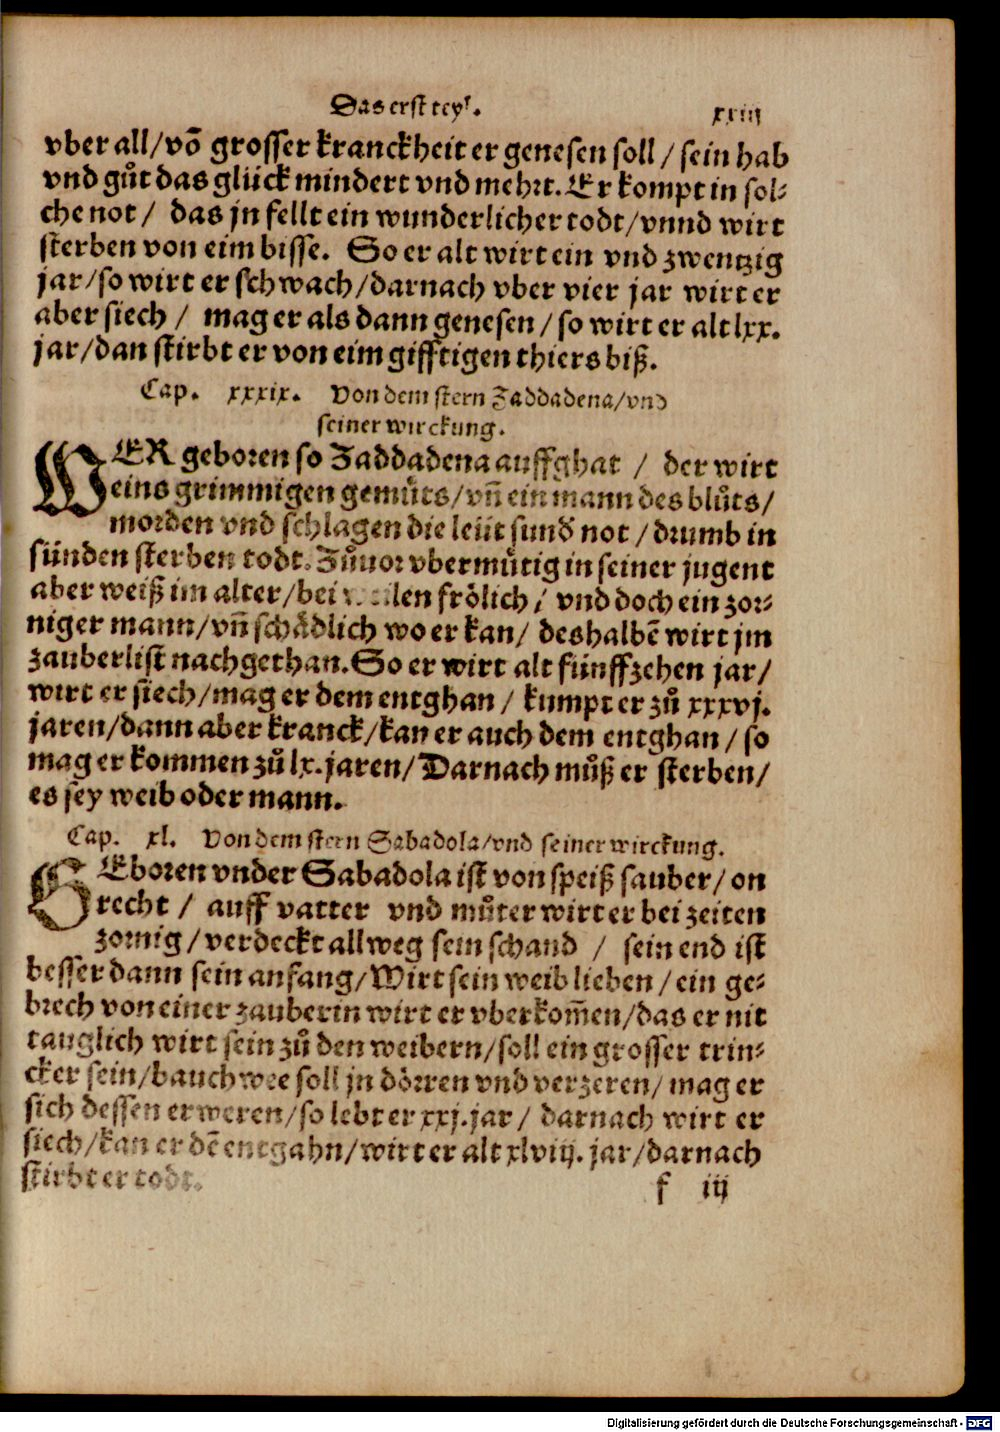 Das erst teyl.
xxiij
vber all/võ grosser kranckheit er genesen soll / sein hab
vnd gůt das glück mindert vnd mehrt. Er kompt in sol⸗
che not / das jn fellt ein wunderlicher todt/vnnd wirt
sterben von eim bisse. So er alt wirt ein vnd zwentzig
jar/so wirt er schwach/darnach vber vier jar wirt er
aber siech / mag er als dann genesen / so wirt er alt lxx.
jar/dan stirbt er von eim gifftigen thiers biß.
Cap. xxxix. Von dem stern Zaddadena/vnd
seiner wirckung.
WER geboren so Zaddadena auffghat / der wirt
eins grimmigen gemůts/vñ ein mann des blůts/
morden vnd schlagen die leüt sund not / drumb in
sünden sterben todt. Zůuor vbermůtig in seiner jugent
aber weiß im alter/bei frölich / vnd doch ein zor⸗
niger mann/vñ schådlich wo er kan/ deshalbẽ wirt jm
zauberlist nachgethan. So er wirt alt fünffzehen jar/
wirt er siech/mag er dem entghan / kumpt er zů xxxvj.
jaren/dann aber kranck/kan er auch dem entghan / so
mag er kommen zů lx. jaren/ Darnach můß er sterben/
es sey weib oder mann.
Cap. xl. Von dem stern Sabadola/vnd seiner wirckung.
GEboren vnder Sabadola ist von speiß sauber/ on
recht / auff vatter vnd můter wirt er bei zeiten
zornig/verdeckt allweg sein schand / sein end ist
besser dann sein anfang/Wirt sein weib lieben / ein ge⸗
brech von einer zauberin wirt er vberkom̃en/das er nit
tauglich wirt sein zů den weibern/soll ein grosser trin⸗
cker sein/bauchwee soll jn dörren vnd verzeren/ mag er
sich dessen erweren/so lebt er xxj. jar / darnach wirt er
siech/kan er dẽ entgahn/wirt er alt xlviij. jar/darnach
stirbt er todt.
f iij
Digitalisierung gefördert durch die Deutsche Forschungsgemeinschaft - DFG